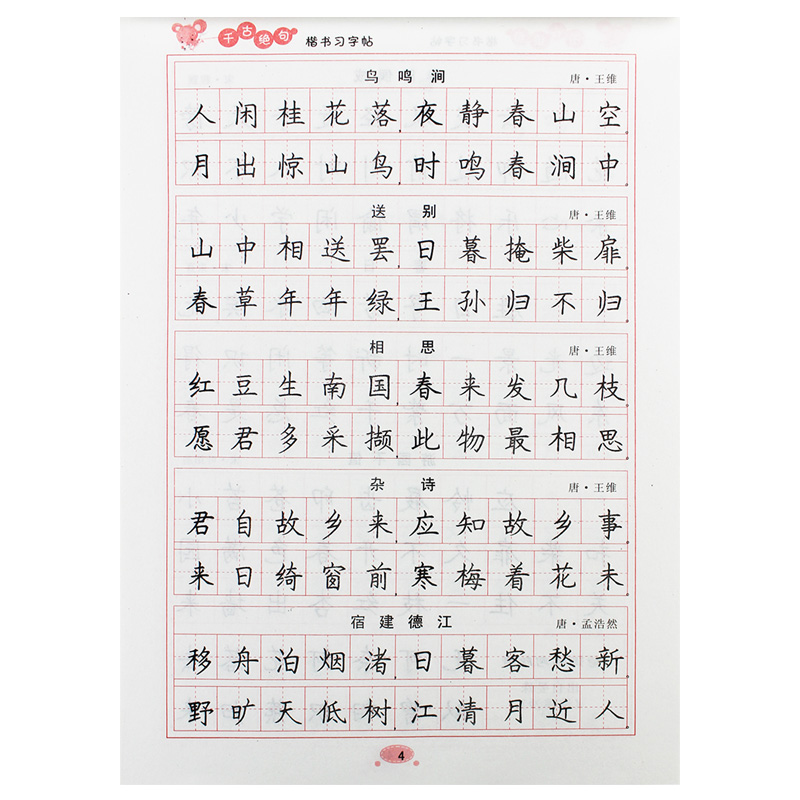 千古绝句 楷书习字帖
鸟鸣涧 唐·王维
人闲桂花落,夜静春山空。
月出惊山鸟,时鸣春涧中。
送别 唐·王维
山中相送罢,日暮掩柴扉。
春草年年绿,王孙归不归。
相思 唐·王维
红豆生南国,春来发几枝。
愿君多采撷,此物最相思。
杂诗 唐·王维
君自故乡来,应知故乡事。
来日绮窗前,寒梅着花未。
宿建德江 唐·孟浩然
移舟泊烟渚,日暮客愁新。
野旷天低树,江清月近人。
4